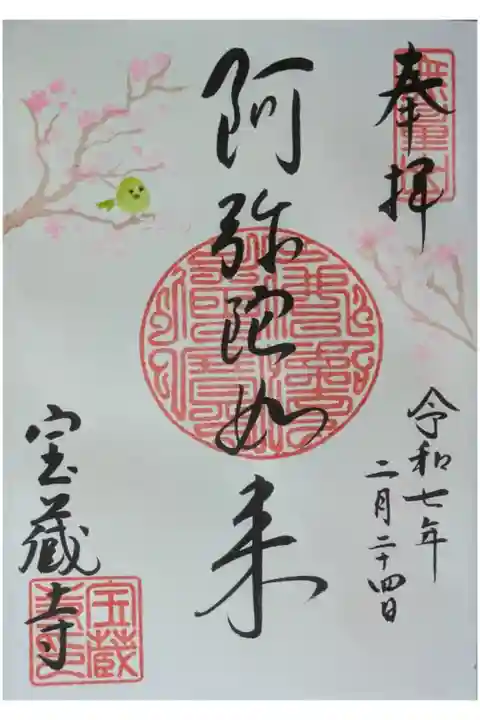 奉拝
阿弥陀如来
令和七年
二月二十四日
宝蔵寺
宝蔵